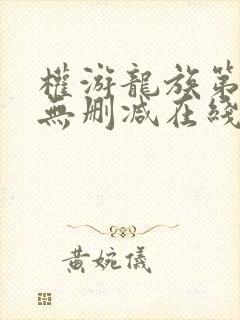 權游龍族第
無刪減在綫
黄婉儀